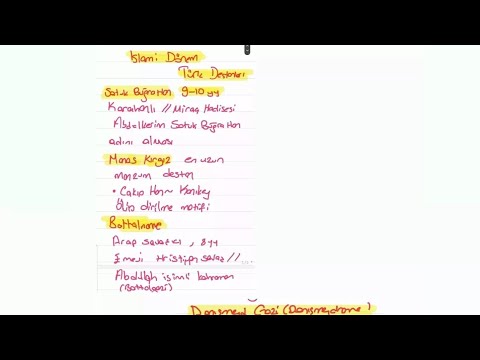 İslami Dönem
Türk Destanları
Satuk Buğra Han 9-10 yy
Karahanlı // Miraç Hadisesi
Abdülkerim Satuk Buğra Han
adını alması
Manas Kırgız en uzun
manzum destan
• Çakıp Han ~ Kanıkey
Ölüp dirilme motifi
Battalname
Arap savaşı, 8 yy
Ermeni Hristiyan savaş //
Abdullah isimli kahraman
(Battalgazi)
Danişment Gazi (Danişmendname)